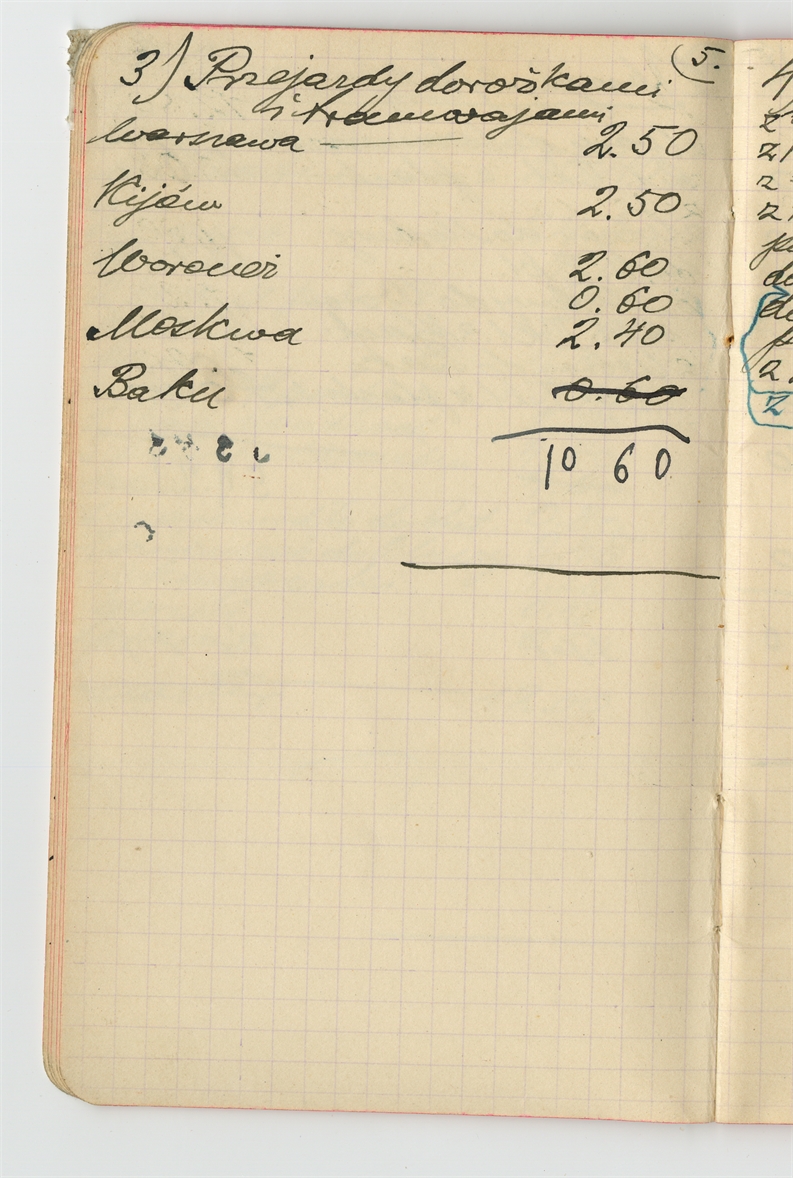 5.
3) Przejazdy dorożkami
i tramwajami
Warszawa 2.50
Kijów 2.50
Woroneż 2.60
0.60
Moskwa 2.40
Baku 0.60
10 60